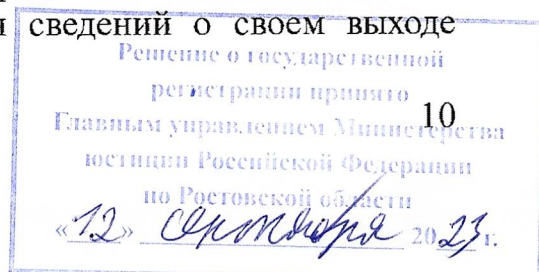 и сведений о своем выходе
Решение о государственной
регистрации принято
10
Главным управлением Министерства
юстиции Российской Федерации
по Ростовской области
«12» сентября 2023 г.